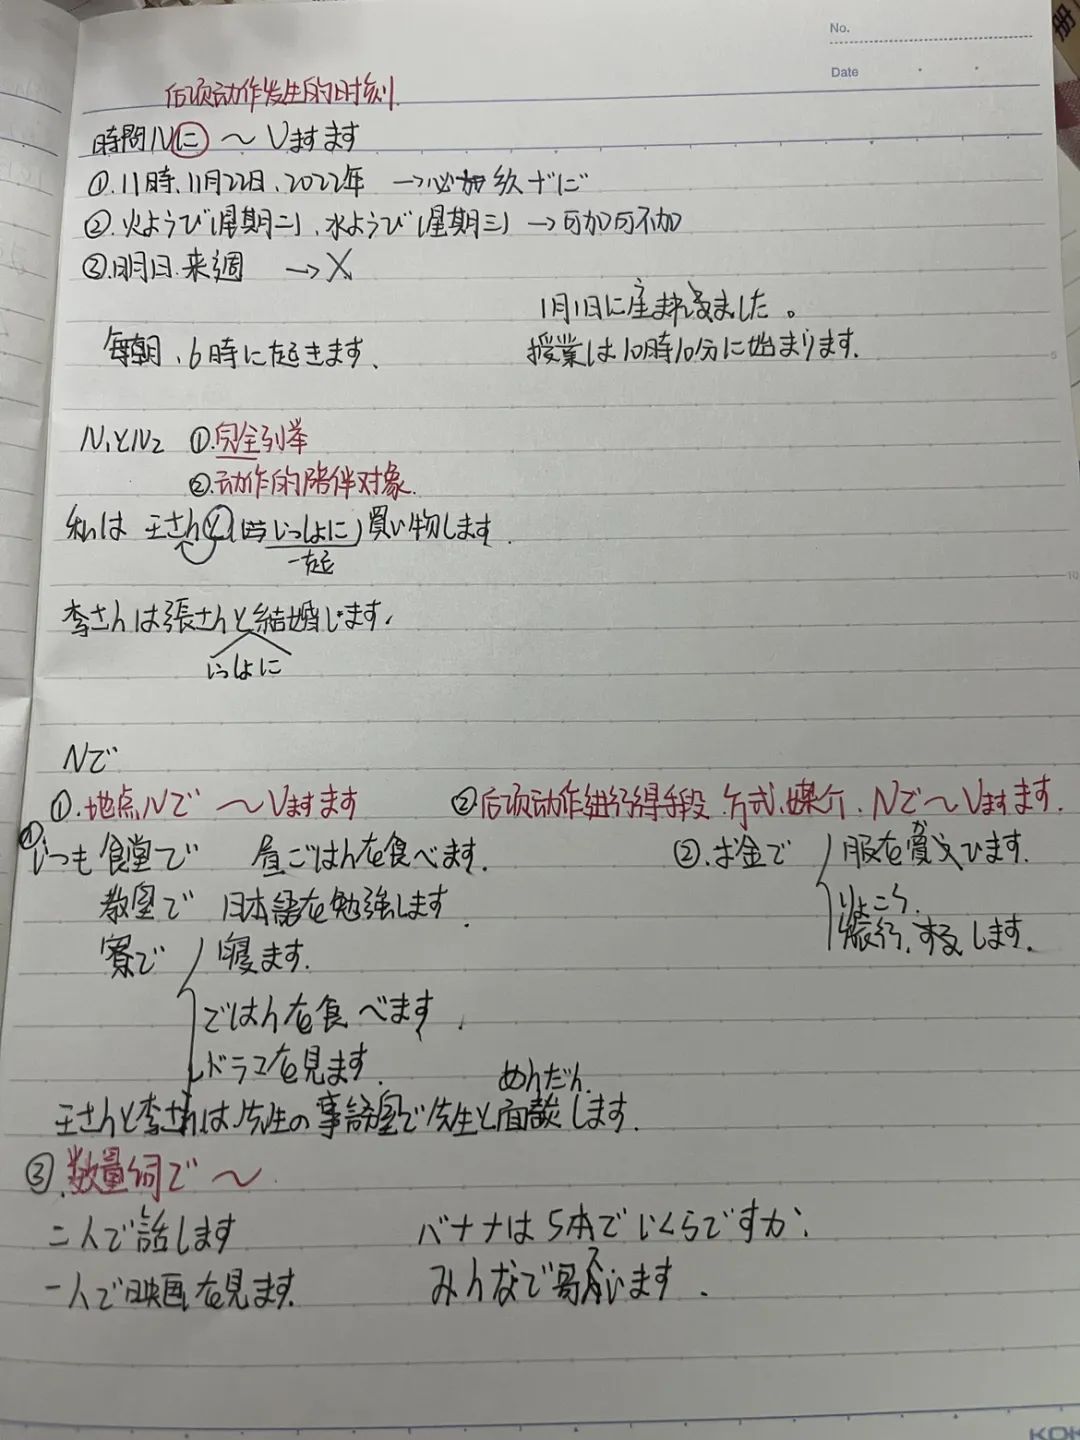 No.
Date
册
后项动作发生的时刻
時間Nに ～Vますます
①.11時、11月22日、2022年 →必加 "に"
②.火ようび(星期二)、水ようび(星期三) →可加可不加
③.明日.来週 →X
1月1日に産まれました。
毎朝、6時に起きます.
授業は10時10分に始まります.
5
N₁とN₂ ①.完全列举
②.动作的陪伴对象.
私は 王さんと(いっしょに)買い物します.
一起
10
李さんは張さんと結婚します.
いっしょに
Nで
①.地点Nで ～Vますます ②后项动作进行得手段.方式.媒介.Nで～Vますます.
①いつも食堂で 昼ごはんを食べます. ②.お金で 服を買います.
か
教室で 日本語を勉強します.
りょこう.
旅行.するします.
寮で 寝ます.
ごはんを食べます.
ドラマを見ます.
めんだん.
王さんと李さんは先生の事務室で先生と面談します.
③.数量词で～
二人で話します バナナは5本でいくらですか.
一人で映画を見ます. みんなで います.
KOK